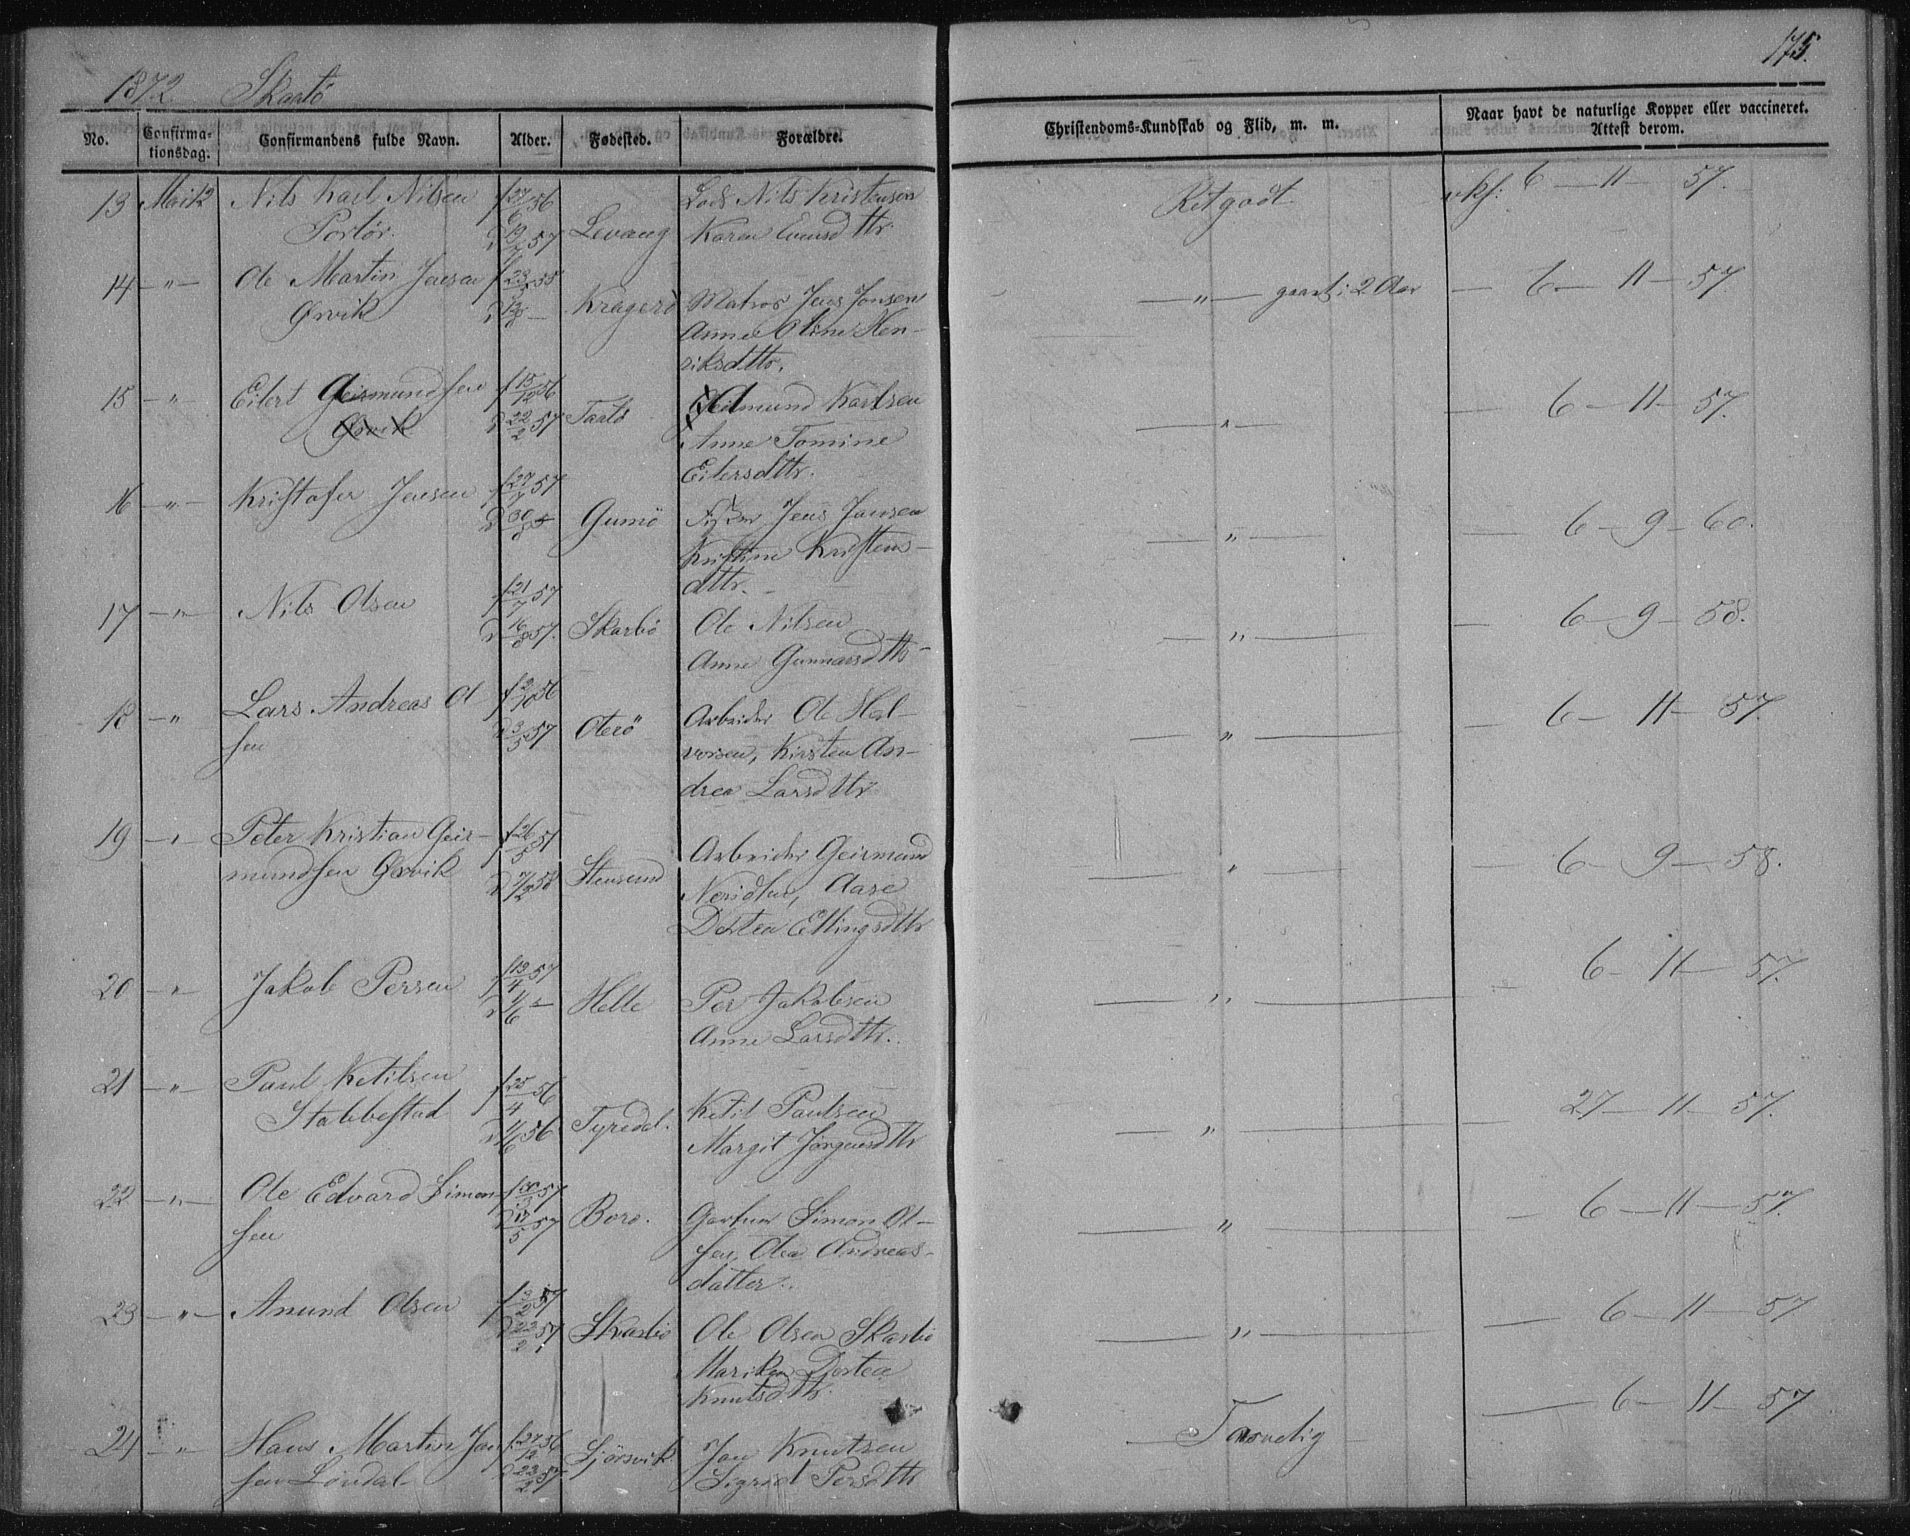 175.
1872 Skaatö
No.
Confirma-
tionsdag.
Confirmandens fulde Navn.
Alder.
Fødested.
Forældre.
Christendoms-Kundskab og Flid, m. m.
Naar havt de naturlige Kopper eller vaccineret.
Attest derom.
13 Nils Karl Nilsen f 27/6 56 Lods Nils Kristensen Retgodt 6 – 11 – 57.
Portör. D 19/7 57 Levang Karen Evensdttr
14 –„– Ole Martin Jensen f 23/ 55
Ørvik D Kragerö Matros Jens Jonsen –„– gaaet i 2 Aar – 6 – 11 – 57
Anne Oline Hen-
riksdttr.
15 –„ Eilert Geirmundsen f 15/12 56 Geirmund Karlsen –„– – 6 – 11 – 57.
Ørvik D 22/2 57 Taatö Anne Tomine
Eilersdttr.
16 –„– Kristofer Jensen f 27/7 57
D 30/8 Gumö Jens Jansen –„– – 6 – 9 – 60.
Kristine Kristens-
dttr.
17 –„– Nils Olsen f 21/7 57
D 16/8 57. Skarbö Ole Nilsen –„– – 6 – 9 – 58.
Anne Gunnarsdttr
18 –„ Lars Andreas Ol f 2/10 56
sen D 3/5 57 Oterö Arbeider Ole Hal- –„– – 6 – 11 – 57.
vorsen, Kirsten An-
drea Larsdttr
19 –„ Peter Kristian Geir- f 26/5 57
mundsen Ørvik D 7/2 58 Stensund Arbeider Geirmund –„– – 6 – 9 – 58.
Aase
Dortea Ellingsdttr
20 –„ Jakob Persen f 13/4 57
D 1/6 – Helle Per Jakobsen –„– 6 – 11 – 57.
Anne Larsdttr.
21 –„ Paul Ketilsen f 25/4 56
Stabbestad D 1/6 56 Tyredal. Ketil Paulsen –„– 27 – 11 – 57.
Margit Jörgensdttr
22 –„– Ole Edvard Simon- f 57
sen D 17/5 57 Borö. Simon Ol- –„– – 6 – 11 – 57.
sen, Olea Andreas-
datter.
23 –„– Anund Olsen f 3/2 57
D 23/2 57 Skarbö Ole Olsen Skarbö –„– – 6 – 11 – 57
Mariken Dortea
Knutsdttr.
24 –„ Hans Martin Jan f 27/12 56
sen Löndal D 22/2 57 Jan Knutsen Tarvelig – 6 – 11 – 57
Sigrid Persdttr